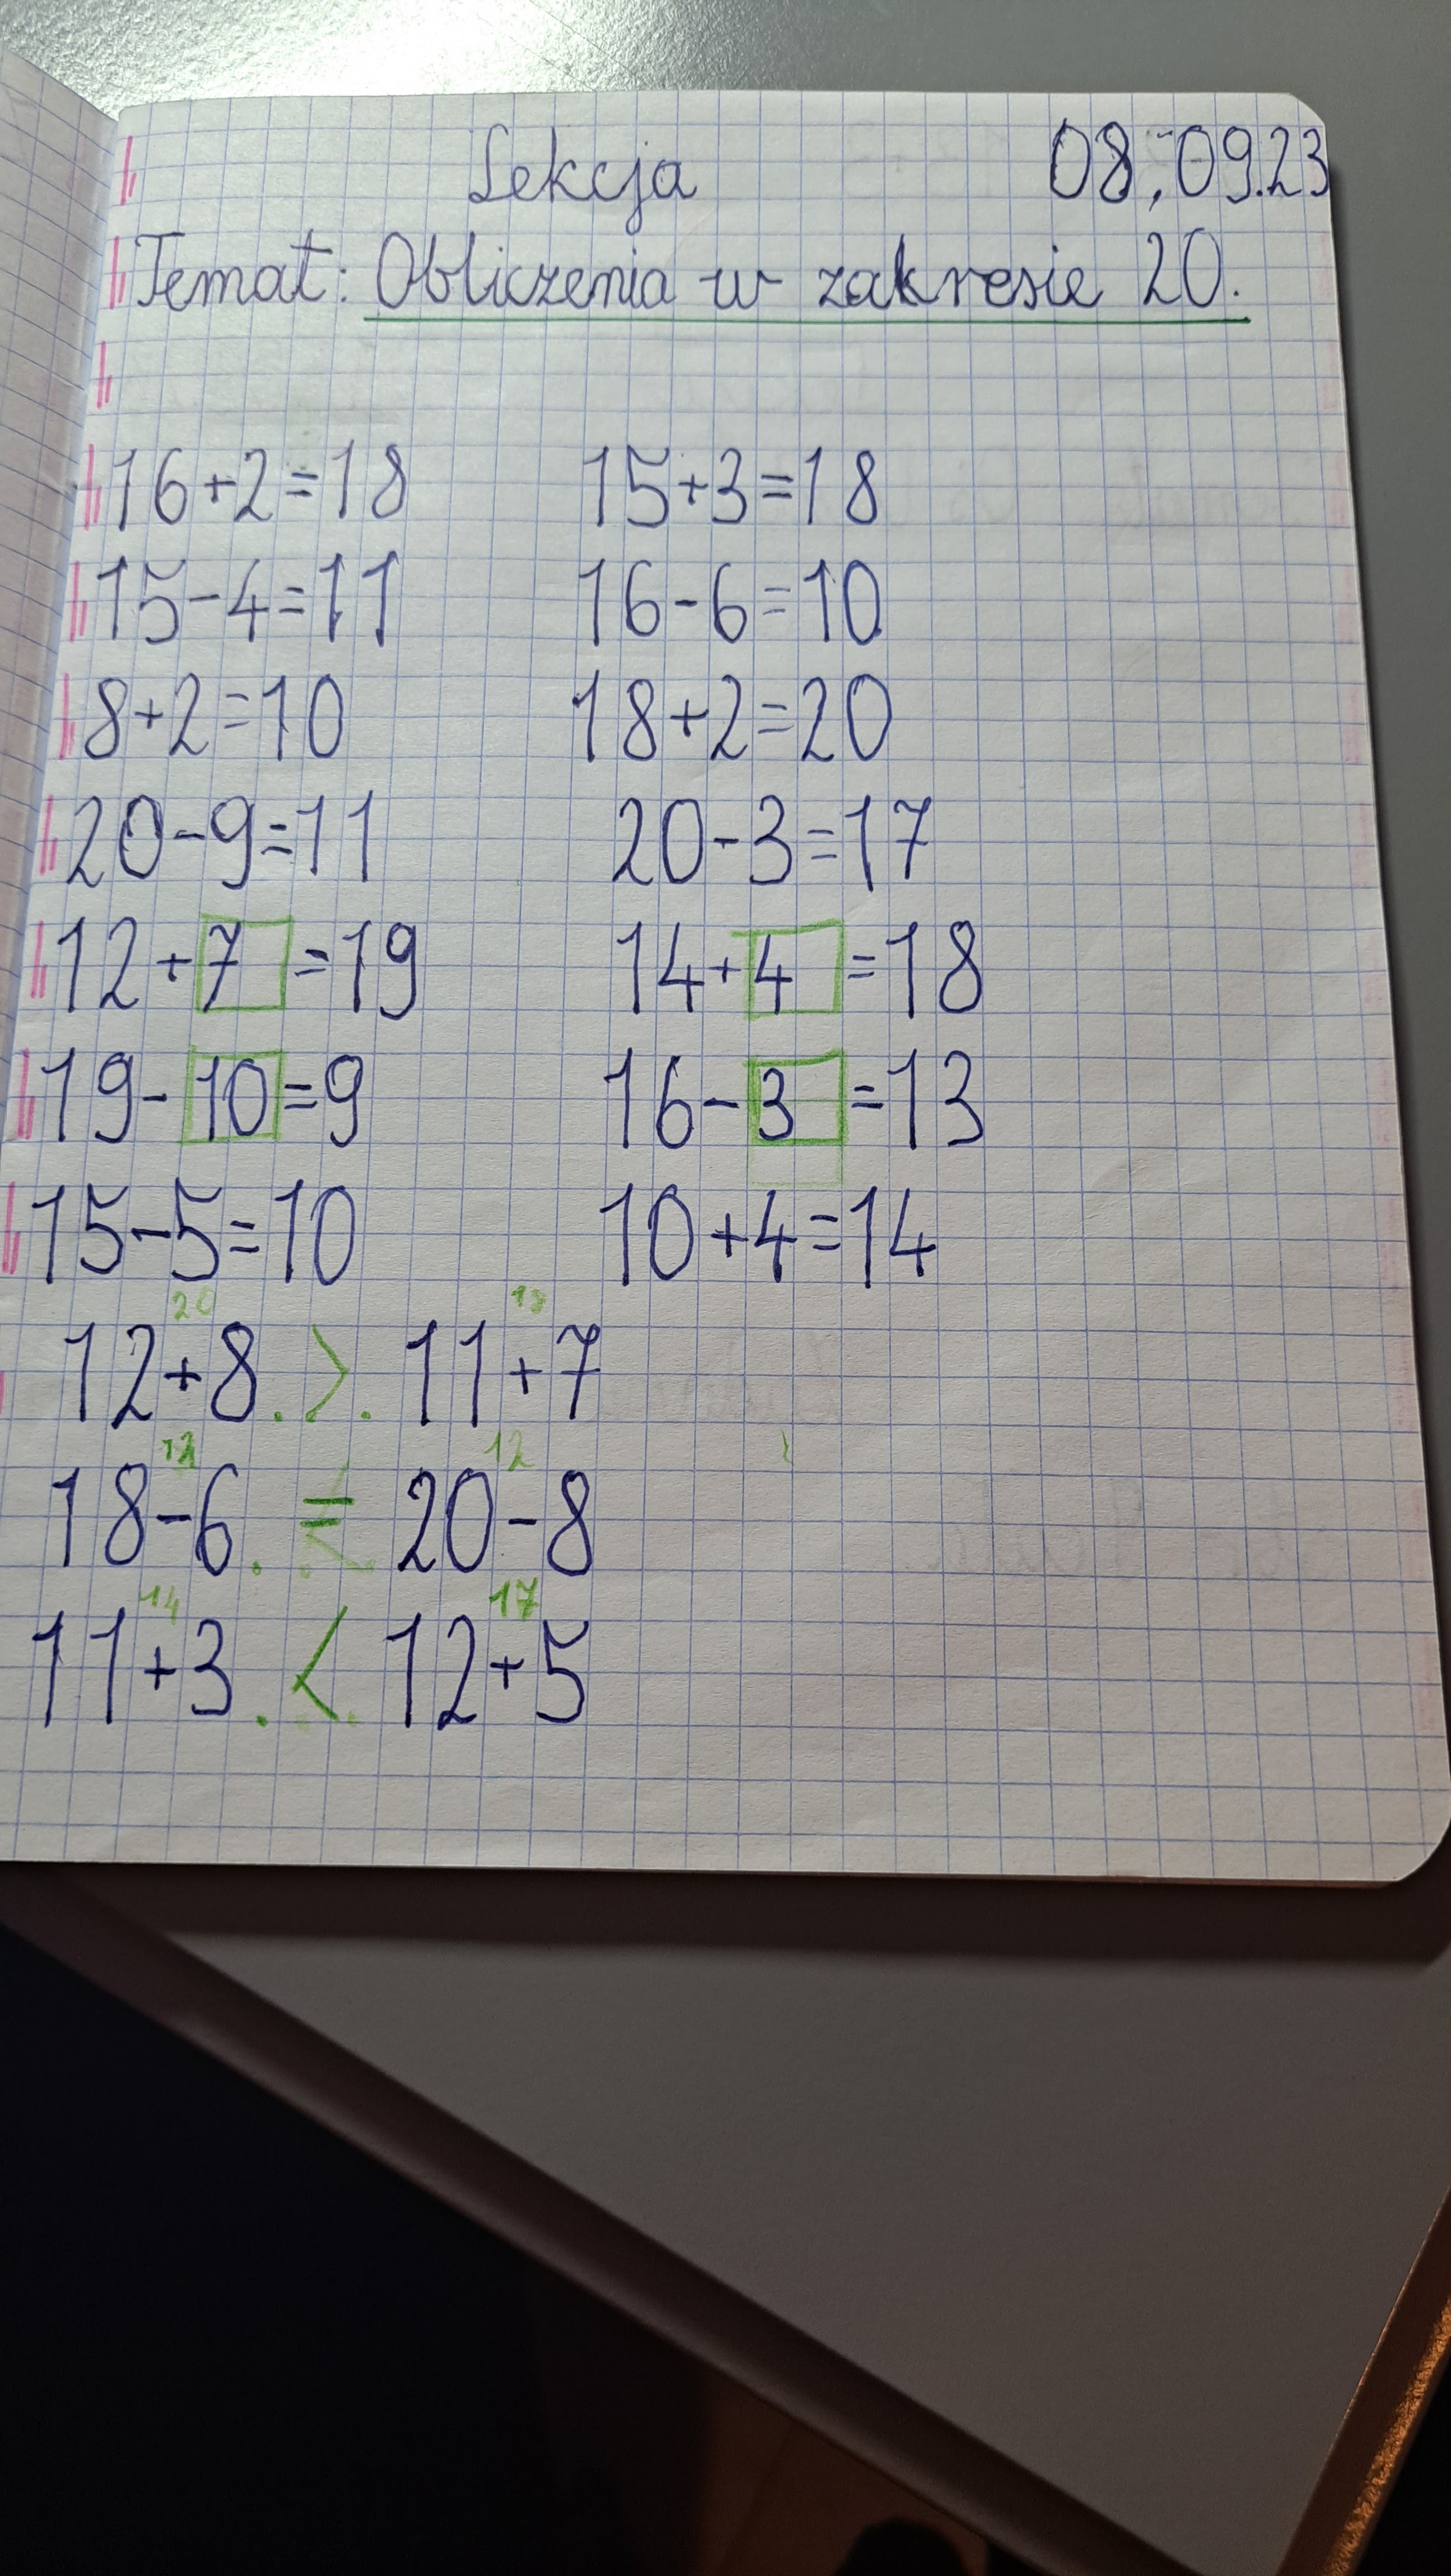 Lekcja 08.09.23
Temat: Obliczenia w zakresie 20.
16+2=18 15+3=18
15-4=11 16-6=10
8+2=10 18+2=20
20-9=11 20-3=17
12+7=19 14+4=18
19-10=9 16-3=13
15-5=10 10+4=14
20 18
12+8.>.11+7
12 12
18-6.=.20-8
14 17
11+3.<.12+5